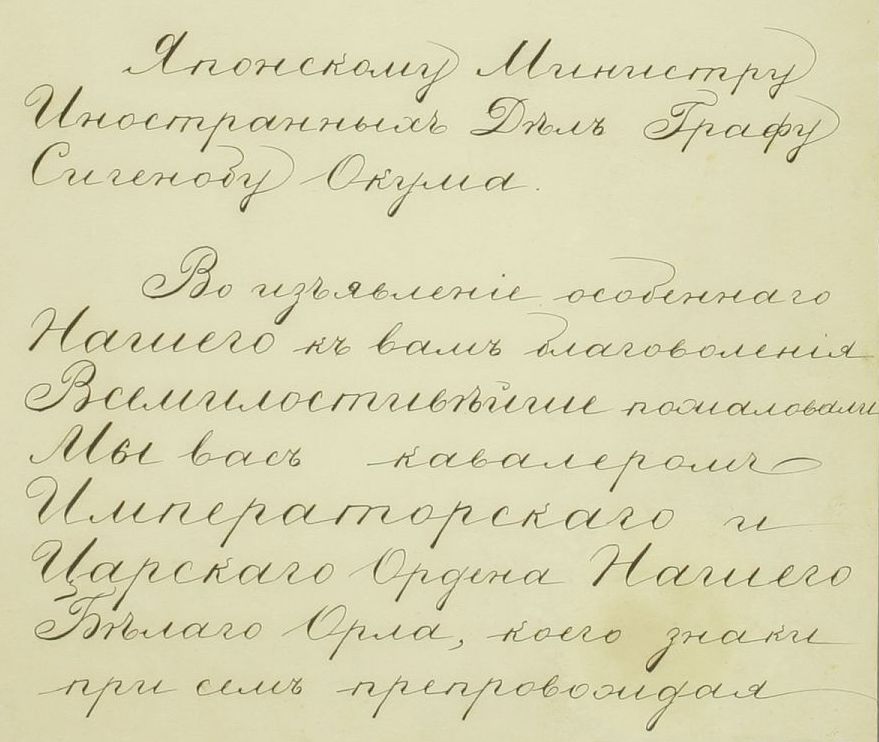 Японскому Министру
Иностранныхъ Дѣлъ Графу
Сигенобу Окума.
Во изъявленіе особеннаго
Нашего къ вамъ благоволенія
Всемилостивѣйше пожаловали
Мы васъ кавалеромъ
Императорскаго и
Царскаго Ордена Нашего
Бѣлаго Орла, коего знаки
при семъ препровождая